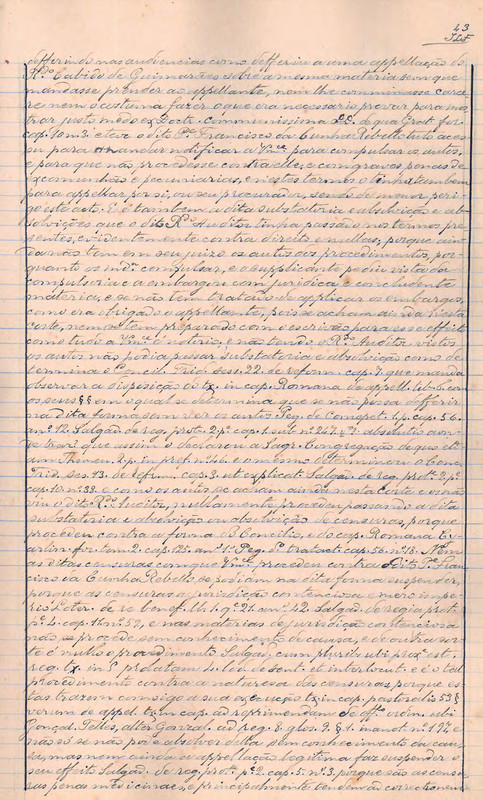 43
defferindo nas audiencias como defferiu a uma appellação do
R.do Cabido de Guimarães sobre a mesma materia sem que
mandasse prender ao appellante, nem lhe comminasse carce
re nem o costuma fazer o que era necessario provar para mos
trar justo medo ex Doct. communissima
cap. 10 n. 3. e teve o dito P.e Francisco da Cunha Rebello titulo aces
su para mandar notificar a V.mce para compulsar os autos,
e para que não procedesse contra elle, e com graves penas de
excommunhão e pecuniarias, e n'estes termos o tinha tambem
para appellar por si, ou seu procurador, sendo de menor peri
go este acto. E é tambem a dita substatoria e absolvição e ab
solvições que o dito R.do Auditor tinha passado nos termos pre
sentes, evidentemente contra direito e nullas, porque ain
da não tem em seu juizo os autos aos procedimentos, por
quanto os mdou compulsar, e o supplicante pediu vista da
compulsoria e a embargou com juridica e concludente
materia, e se não tem tratado de applicar os embargos,
como era obrigado o appellante, pois se acham ainda n'esta
Corte, nem os tem preparado com o escrivão para esse effeito
como tudo a V.mce é notorio, e não tendo o R.do Auditor vistos
os autos não podia passar substatoria e absolvição como de
termina o Concil. Trid. sess. 22. de reform. cap. 7. que manda
observar a disposição do tx. in cap. Romana de appell. lib. 6. com
os seus §§ em o qual se determina que se não possa defferir
na dita forma sem ver os autos Peg. de Competet. 1. p. cap. 56.
n.o 12. Salgad. de reg. prot. 2. p. cap. 1. sub n.o 247.
trará que assim o declarou a Sagr. Congregação
Trid. ses. 13. de reform. cap. 3. ut explicat Salgad. de reg. prot. 2. p.
cap. 10 n.o 33. e como os autos se acham ainda n'esta Corte e os não
viu o dito R.do Auditor, nullamente procedeu passando a dita
substatoria e absolvição ou absolvição de censuras, porque
procedeu contra a forma do Concilio, e do cap. Romana
for. tom. 2. cap. 125. an n.o 1. Peg. tratact. cap. 56. n.o 18. Nem
as ditas censuras com que V.mce procedeu contra o dito P.e Fran
cisco da Cunha Rebello se podiam na dita forma suspender,
porque as censuras de jurisdição contenciosa e mero impe
rio Loter. de re benef. lib. 1. q. 21. an n.o 42. Salgad. de regia prot.
p. 4. cap. 1. n.o 57, e nas materias de jurisdição contenciosa
não se procede sem conhecimento de causa, e de outra sor
te é nullo o procedimento Salgad. cum pluribus ubi prox. est.
reg. tx. in l. prolatam 4. cod. de sent. et interlocut. e é o tal
procedimento contra a natureza das censuras, porque es
tas trazem comsigo a sua execução tx. in cap. pastoralis 53 §
verum de appel. tx. in cap. ad reprimendam de off. ordin. ubi
Gonçal. Telles, alter Gonzal. ad reg. 8. glos. 9. § 1. n.o 192 e
não só se não pode absolver d'ella sem conhecimento de cau
sa, mas nem ainda a appellação legitima faz suspender o
seu effeito Salgad. de reg. prot. p. 2. cap. 5. n.o 3. porque são as censu
ras penas medicinaes, e principalmente tendem á correcção